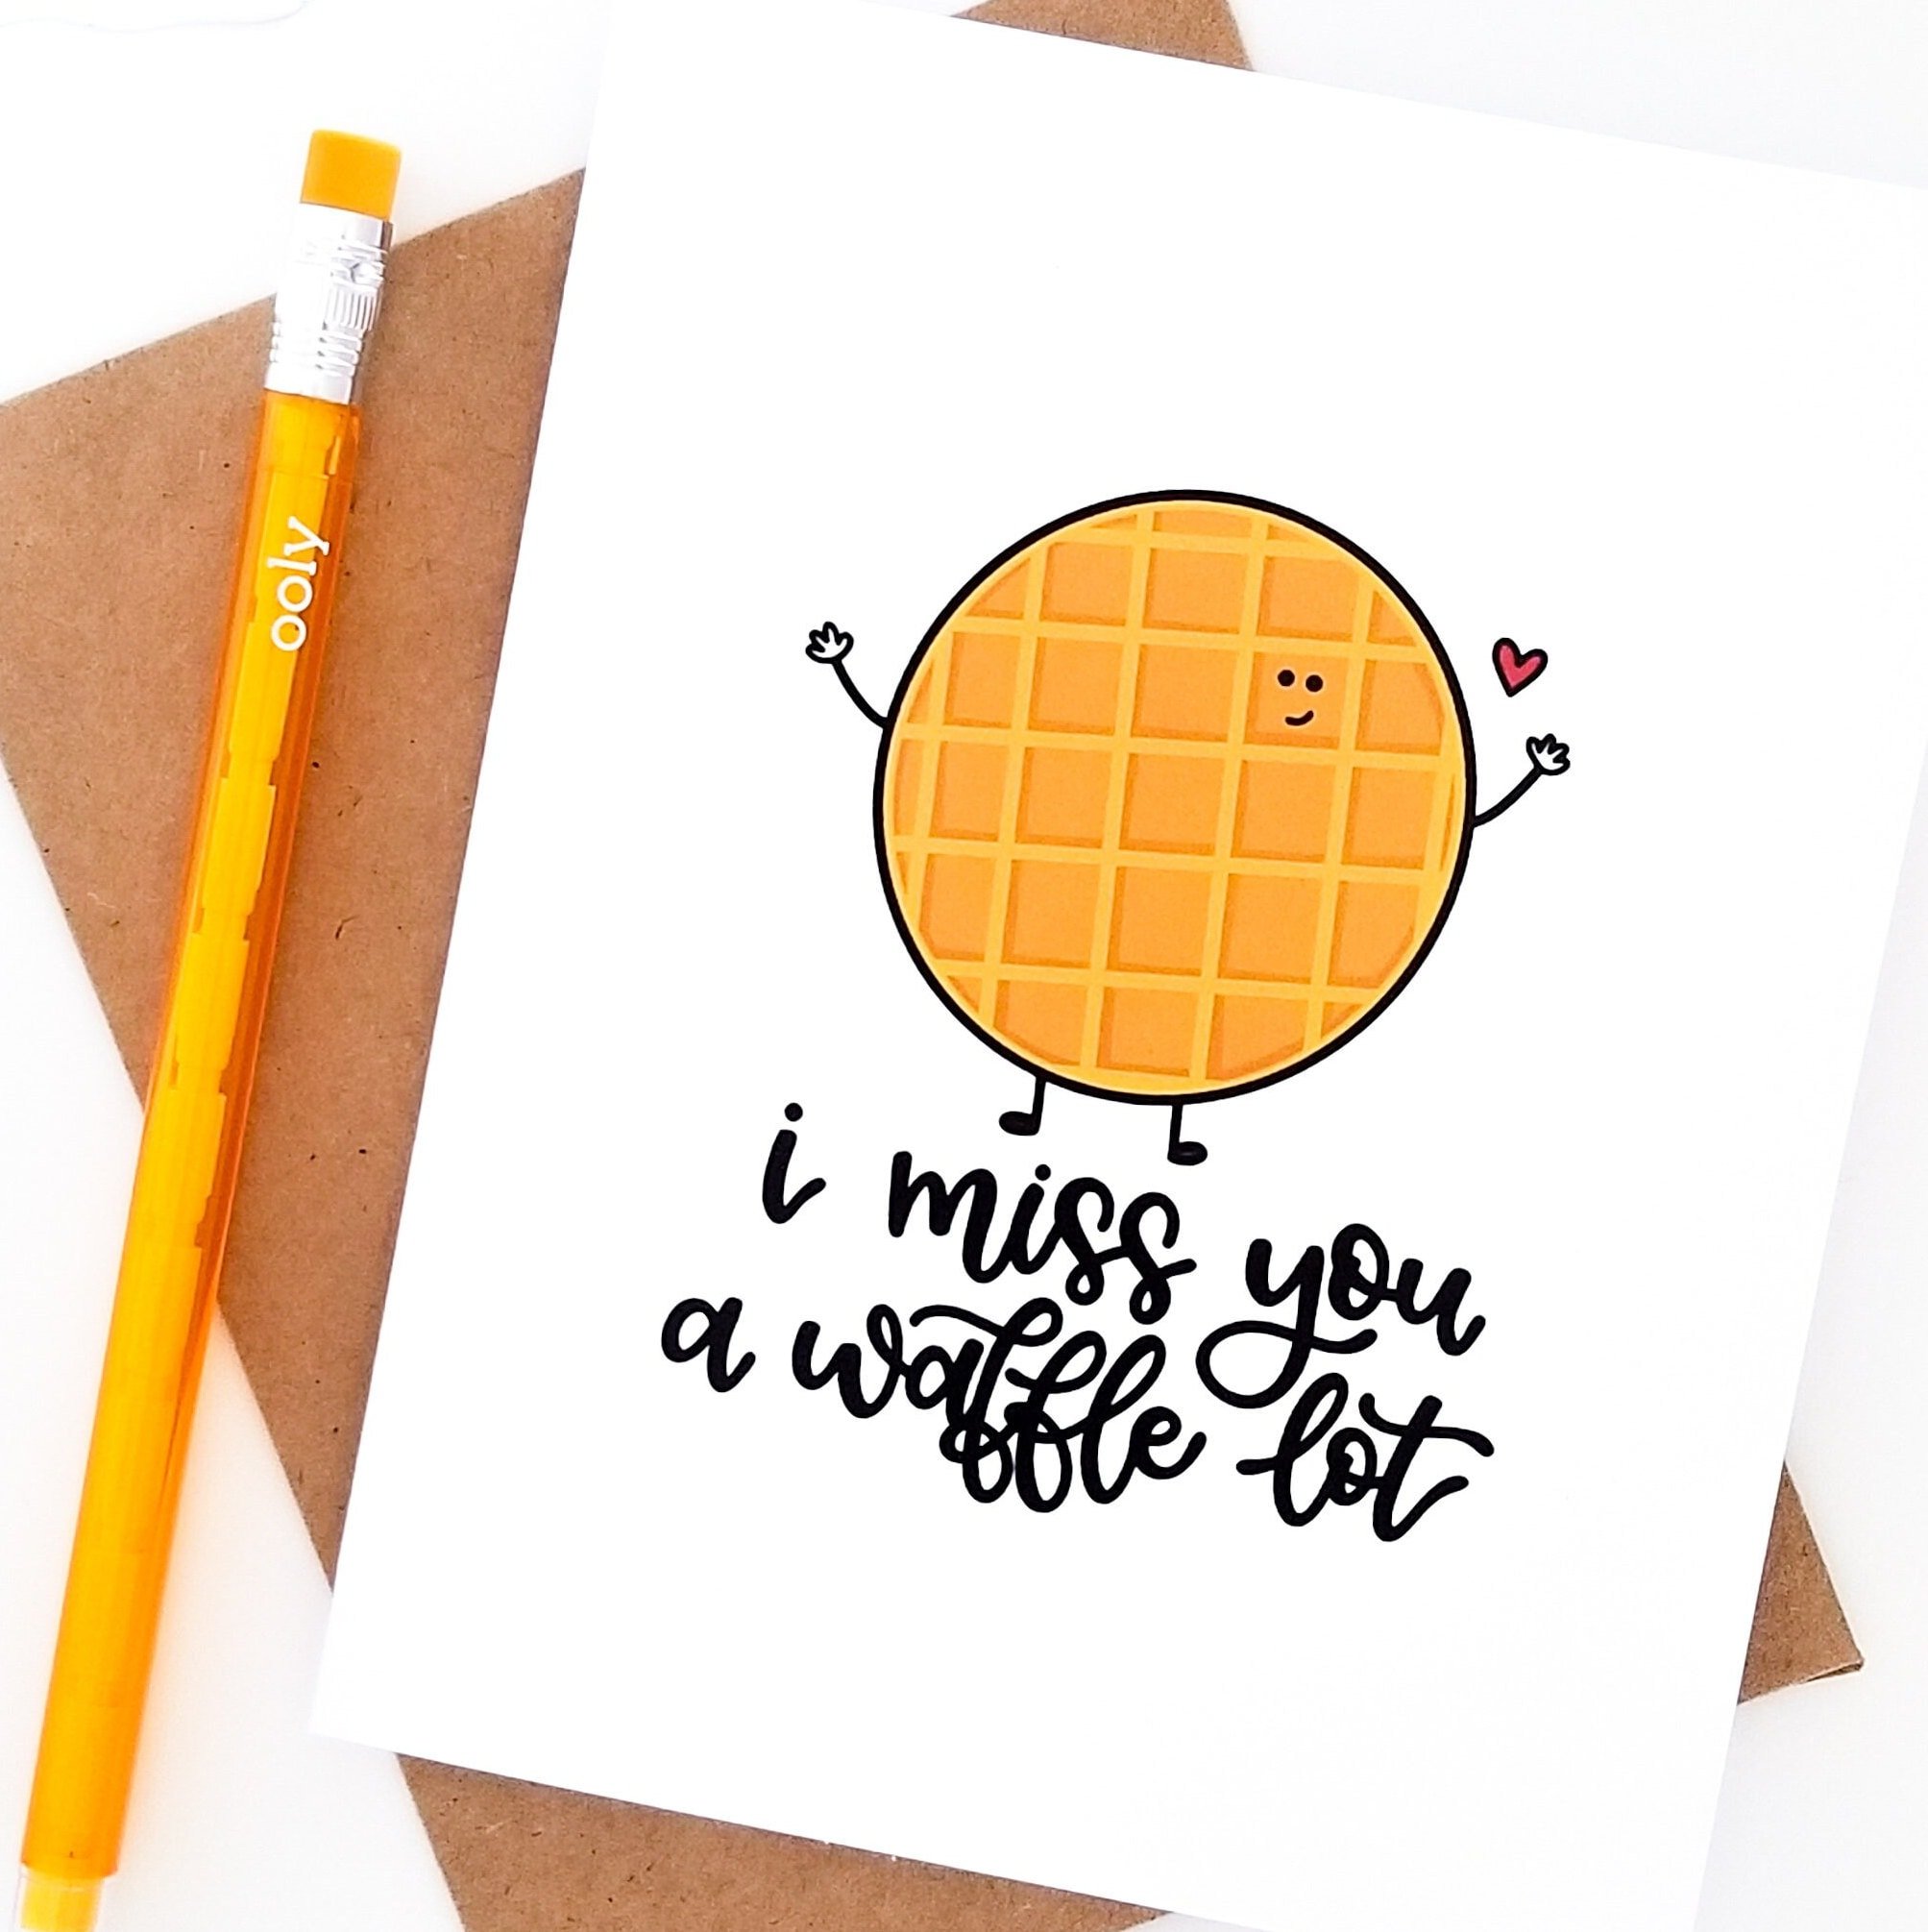 ooly
i miss you
a waffle lot